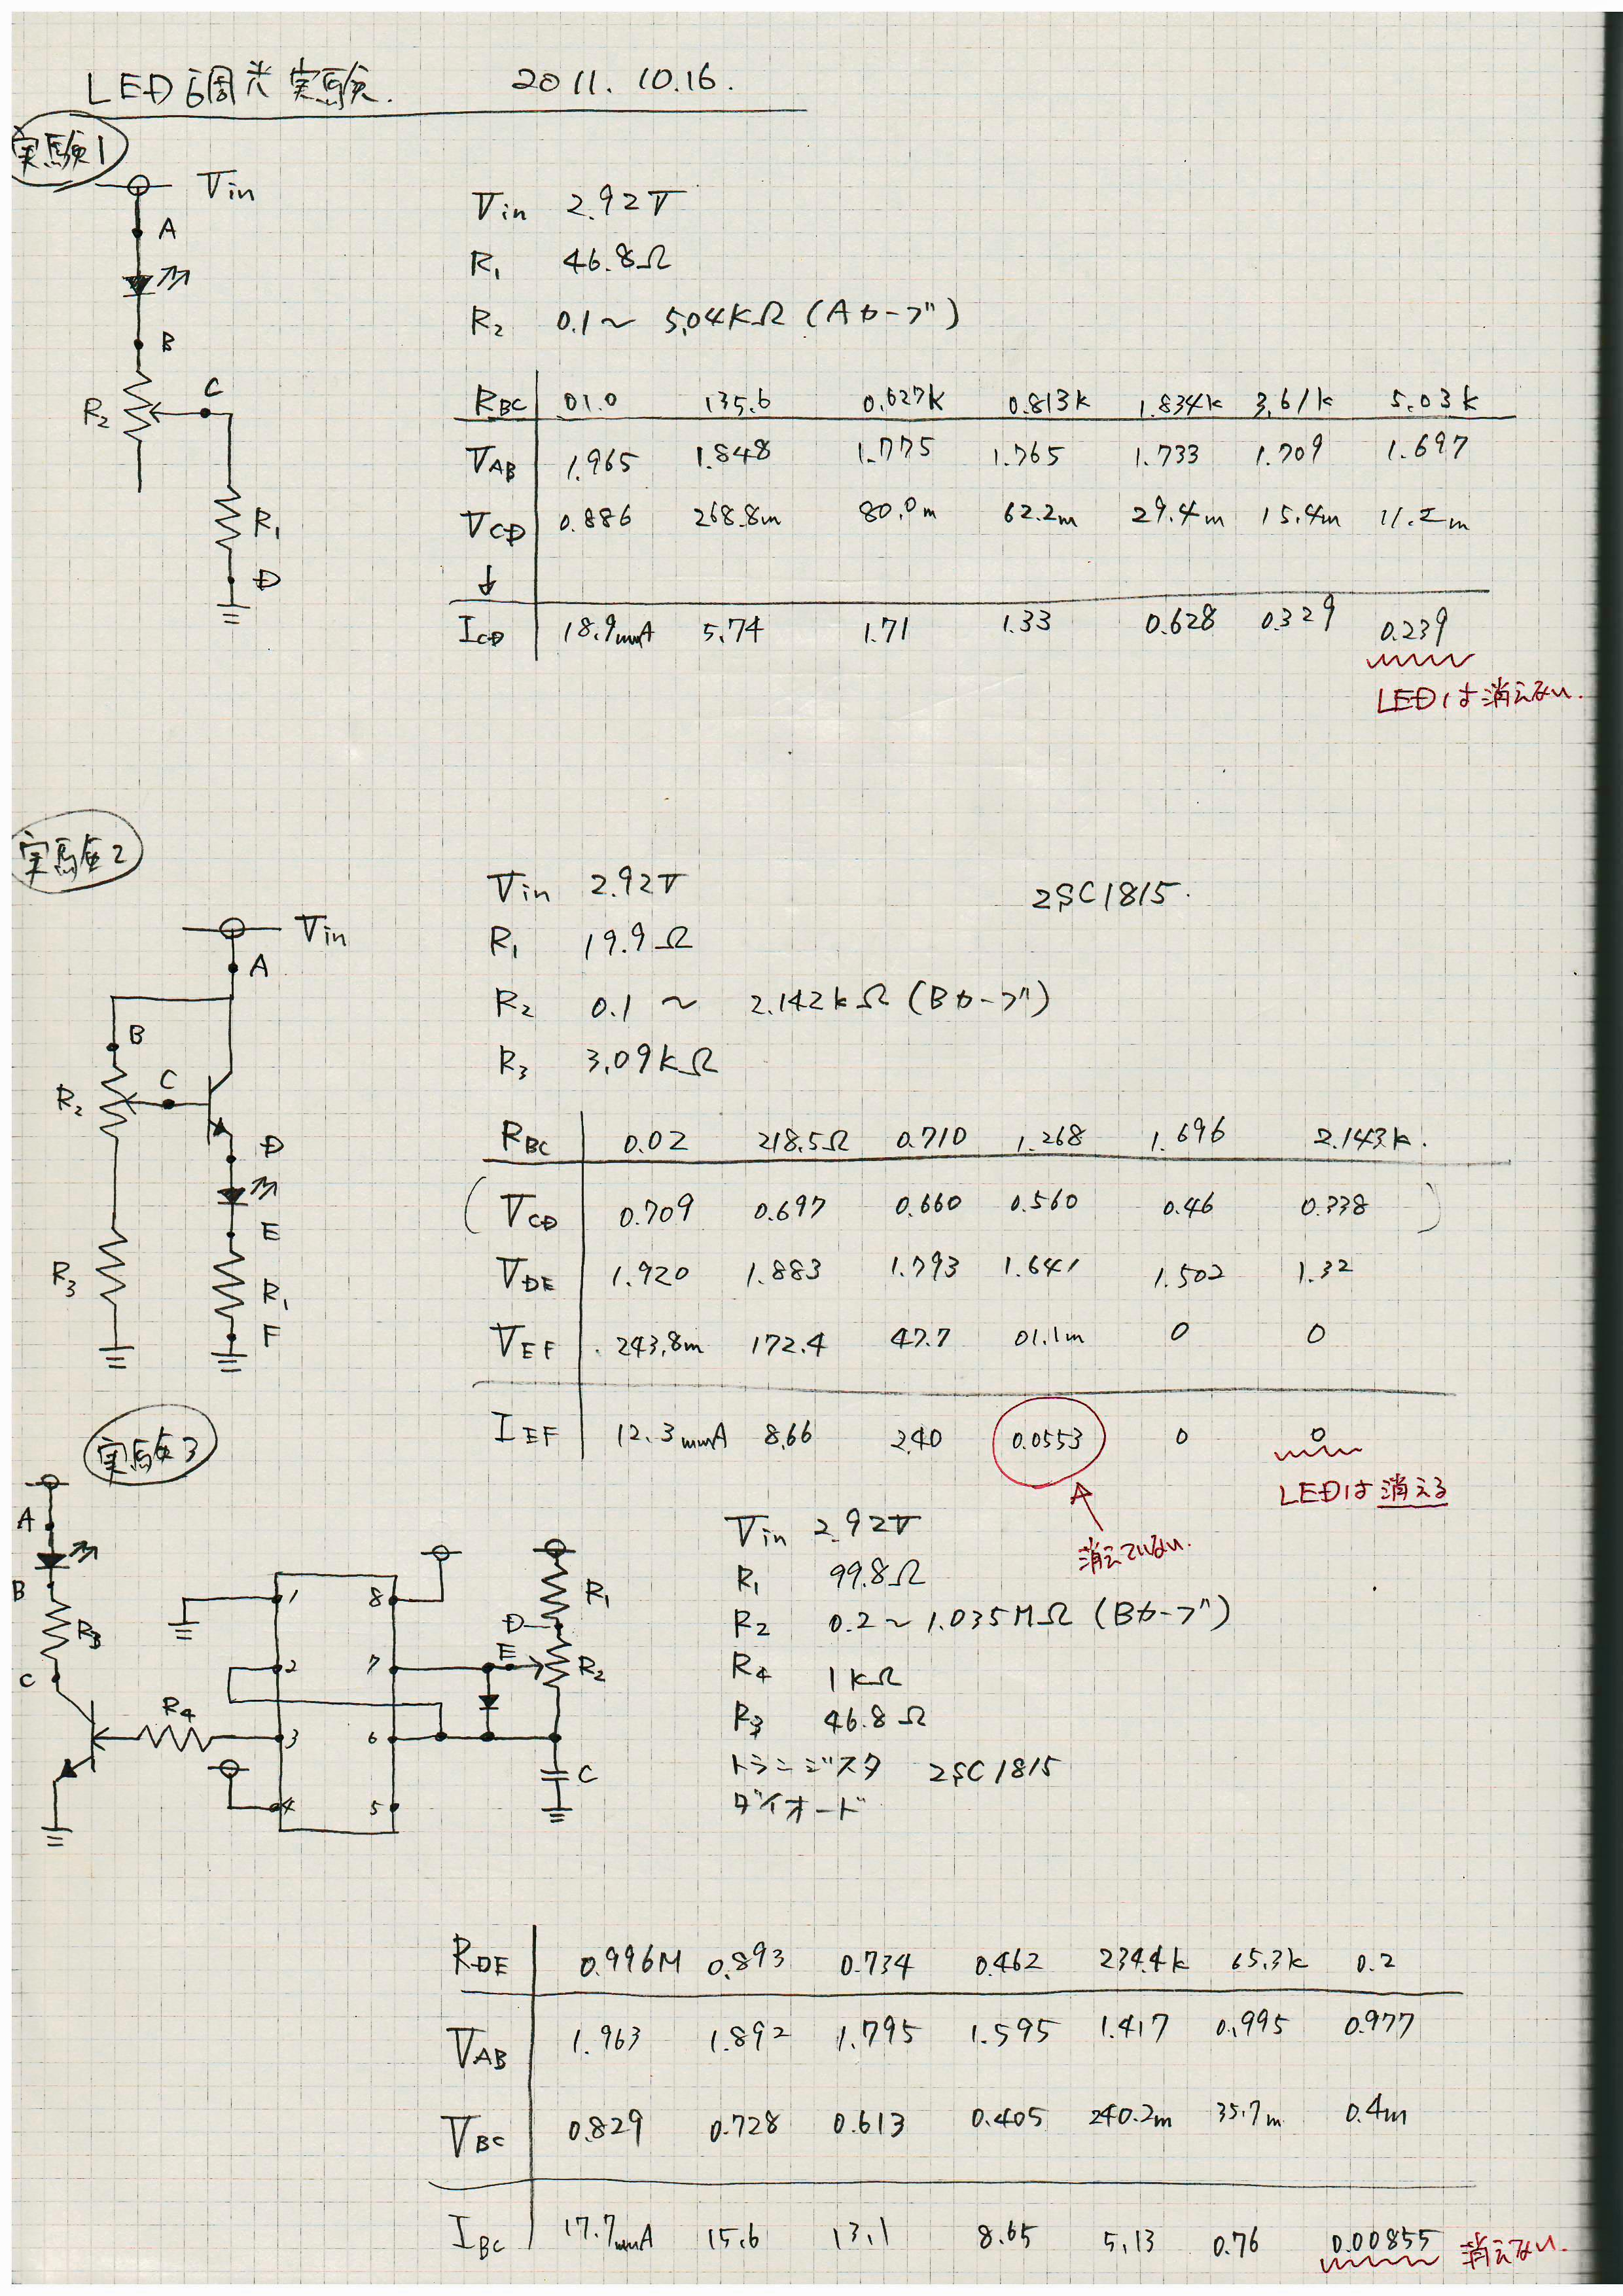 LED調光実験. 2011. 10.16.
実験1
Vin
A
B
C
R2
R1
D
Vin 2.92V
R1 46.8Ω
R2 0.1〜5.04kΩ (Aカーブ)
RBC 01.0 135.6 0.627k 0.813k 1.834k 3.61k 5.03k
VAB 1.965 1.848 1.775 1.765 1.733 1.709 1.697
VCD 0.886 268.8m 80.0m 62.2m 29.4m 15.4m 11.2m
↓
ICD 18.9mmA 5.74 1.71 1.33 0.628 0.329 0.239
LEDは消えない.
実験2
Vin
A
B
C
R2
D
E
R3
R1
F
Vin 2.92V 2SC1815.
R1 19.9Ω
R2 0.1 〜 2.142kΩ (Bカーブ)
R3 3.09kΩ
RBC 0.02 218.5Ω 0.710 1.268 1.696 2.143k.
(VCD 0.709 0.697 0.660 0.560 0.46 0.338)
VDE 1.920 1.883 1.793 1.641 1.502 1.32
VEF 243.8m 172.4 47.7 01.1m 0 0
IEF 12.3mmA 8.66 2.40 0.0553 0 0
LEDは消える
消えていない.
実験3
A
B
R3
C
R4
1 8
2 7
3 6
4 5
R1
D
E
R2
C
Vin 2.92V
R1 99.8Ω
R2 0.2〜1.035MΩ (Bカーブ)
R4 1kΩ
R3 46.8Ω
トランジスタ 2SC1815
ダイオード
RDE 0.996M 0.893 0.734 0.462 234.4k 65.3k 0.2
VAB 1.963 1.892 1.795 1.595 1.417 0.995 0.977
VBC 0.829 0.728 0.613 0.405 240.2m 35.7m 0.4m
IBC 17.7mmA 15.6 13.1 8.65 5.13 0.76 0.00855 消えない.